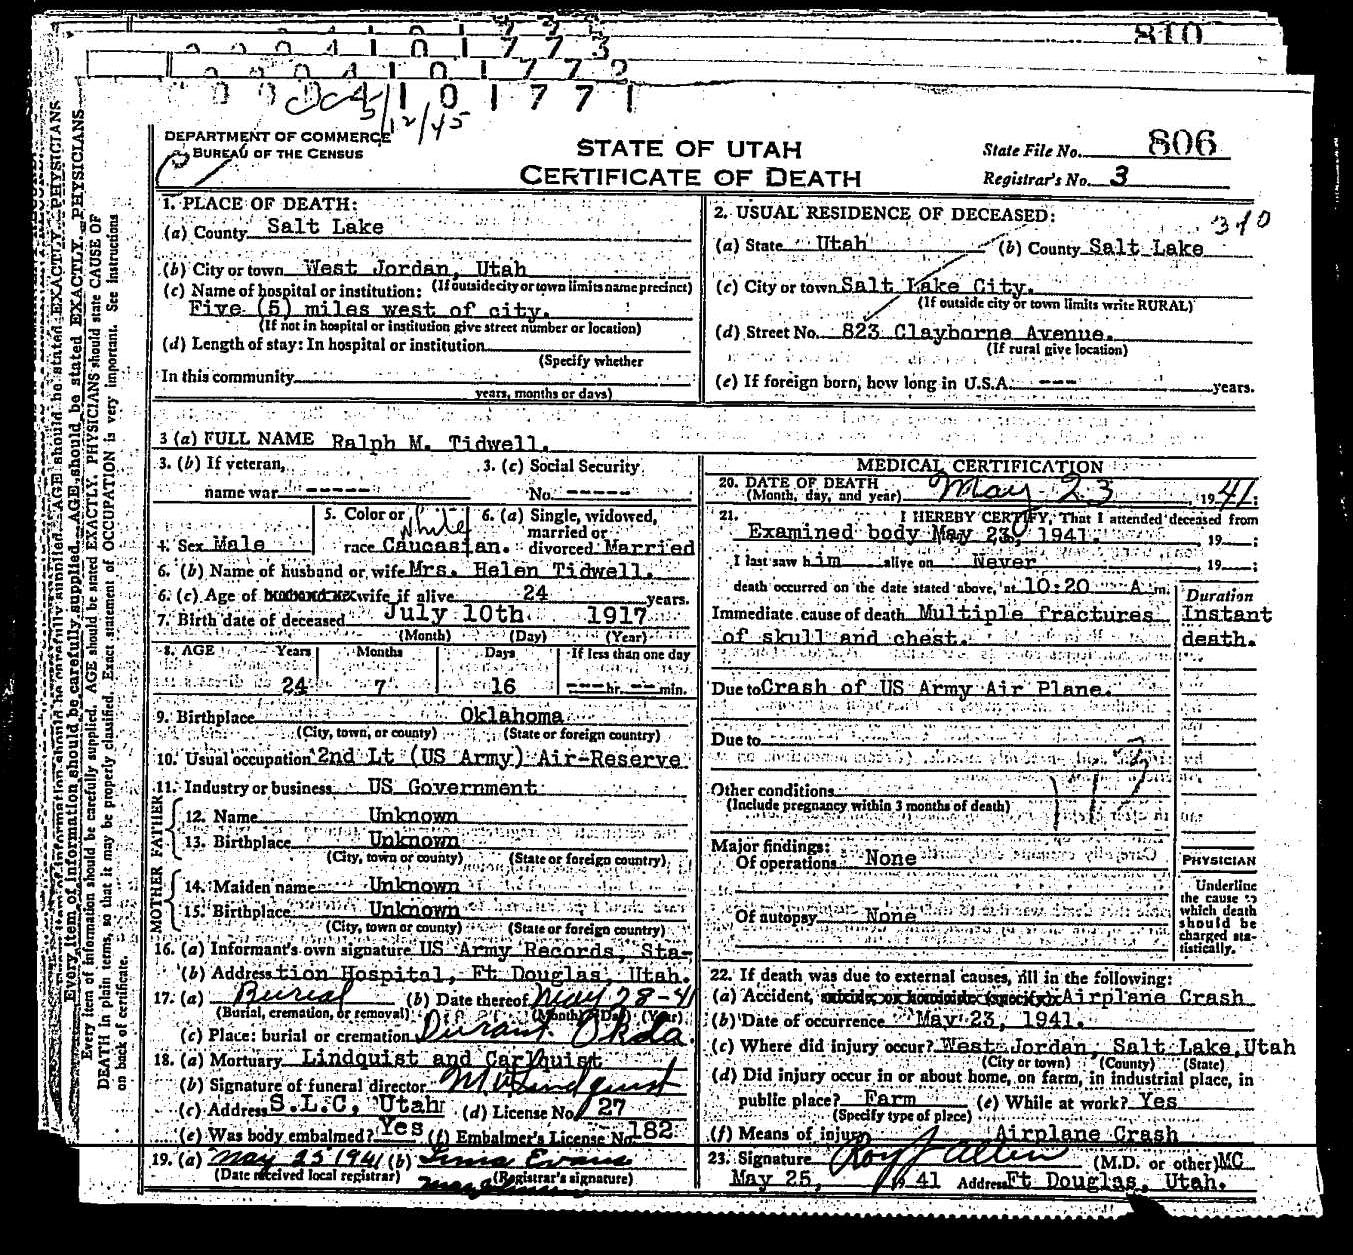 810
0 0 0 4 1 0 1 7 7 3
0 0 0 4 1 0 1 7 7 2
0 0 0 4 1 0 1 7 7 1
5/12/45
DEPARTMENT OF COMMERCE
BUREAU OF THE CENSUS
STATE OF UTAH
CERTIFICATE OF DEATH
State File No. 806
Registrar's No. 3
1. PLACE OF DEATH:
(a) County Salt Lake
(b) City or town West Jordan, Utah
(c) Name of hospital or institution: (If outside city or town limits name precinct)
Five (5) miles west of city.
(If not in hospital or institution give street number or location)
(d) Length of stay: In hospital or institution
(Specify whether
In this community
years, months or days)
2. USUAL RESIDENCE OF DECEASED:
310
(a) State Utah (b) County Salt Lake
(c) City or town Salt Lake City.
(If outside city or town limits write RURAL)
(d) Street No. 823 Clayborne Avenue.
(If rural give location)
(e) If foreign born, how long in U.S.A. --- years.
3 (a) FULL NAME Ralph M. Tidwell.
3. (b) If veteran,
name war -----
3. (c) Social Security
No. -----
4. Sex Male
5. Color or White
race Caucasian.
6. (a) Single, widowed,
married or
divorced Married
6. (b) Name of husband or wife Mrs. Helen Tidwell.
6. (c) Age of husband or wife if alive 24 years.
7. Birth date of deceased July 10th 1917
(Month) (Day) (Year)
8. AGE Years Months Days If less than one day
24 7 16 --- hr. -- min.
9. Birthplace Oklahoma
(City, town, or county) (State or foreign country)
10. Usual occupation 2nd Lt (US Army) Air-Reserve
11. Industry or business US Government
FATHER
12. Name Unknown
13. Birthplace Unknown
(City, town or county) (State or foreign country)
MOTHER
14. Maiden name Unknown
15. Birthplace Unknown
(City, town or county) (State or foreign country)
16. (a) Informant's own signature US Army Records, Sta-
(b) Address tion Hospital, Ft Douglas, Utah.
17. (a) Burial (b) Date thereof May 28-41
(Burial, cremation, or removal) (Month) (Day) (Year)
(c) Place: burial or cremation Durant Okla.
18. (a) Mortuary Lindquist and Carlquist
(b) Signature of funeral director Lindquist
(c) Address S.L.C, Utah (d) License No. 27
(e) Was body embalmed? Yes (f) Embalmer's License No. 182
19. (a) May 25 1941 (b) Evans
(Date received local registrar) (Registrar's signature)
MEDICAL CERTIFICATION
20. DATE OF DEATH
(Month, day, and year) May 23, 1941:
21. I HEREBY CERTIFY, That I attended deceased from
Examined body May 23, 1941. , 19 ;
I last saw him alive on Never , 19 ;
death occurred on the date stated above, at 10:20 A m.
Immediate cause of death Multiple fractures
of skull and chest.
Duration
Instant
death.
Due to Crash of US Army Air Plane.
Due to
Other conditions
(Include pregnancy within 3 months of death)
173
Major findings:
Of operations None
Of autopsy None
PHYSICIAN
Underline
the cause to
which death
should be
charged sta-
tistically.
22. If death was due to external causes, fill in the following:
(a) Accident, suicide, or homicide (specify) Airplane Crash
(b) Date of occurrence May 23, 1941.
(c) Where did injury occur? West Jordan, Salt Lake, Utah
(City or town) (County) (State)
(d) Did injury occur in or about home, on farm, in industrial place, in
public place? Farm (e) While at work? Yes
(Specify type of place)
(f) Means of injury Airplane Crash
23. Signature Roy J Allen (M.D. or other) MC
May 25, 41 Address Ft Douglas, Utah.
Every item of information should be carefully supplied. AGE should be stated EXACTLY. PHYSICIANS
Every item of information should be carefully supplied. AGE should be stated EXACTLY. PHYSICIANS should state CAUSE OF
DEATH in plain terms, so that it may be properly classified. Exact statement of OCCUPATION is very important. See instructions
on back of certificate.